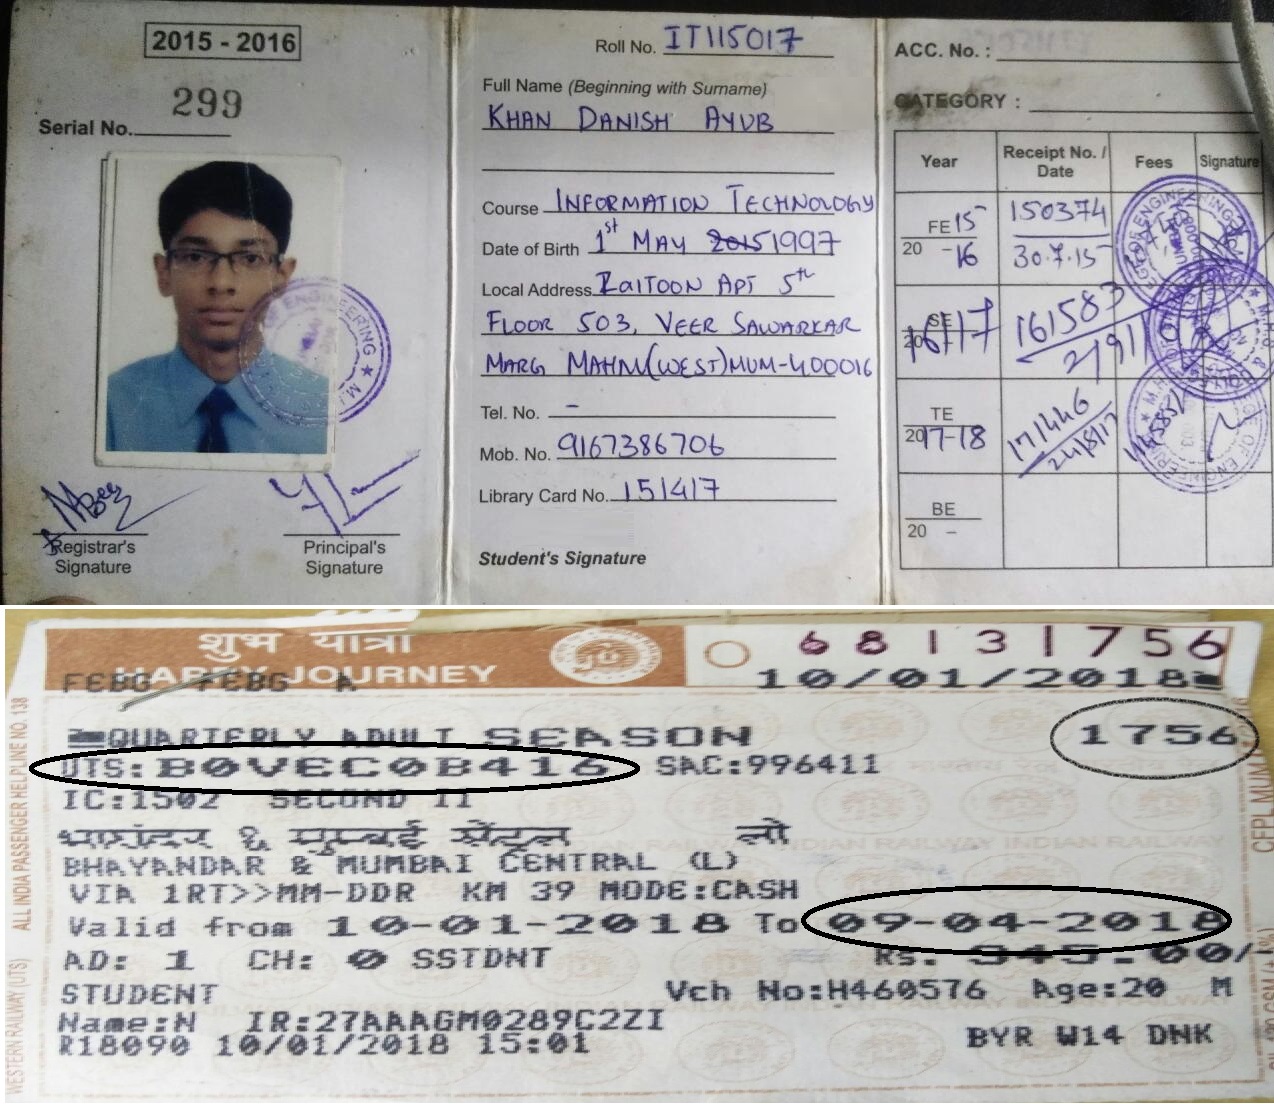 2015 - 2016
299
Serial No.
Registrar's
Signature
Principal's
Signature
Roll No. IT115017
Full Name (Beginning with Surname)
KHAN DANISH AYUB
Course INFORMATION TECHNOLOGY
Date of Birth 1st MAY 2015 1997
Local Address ZAITOON APT 5th
FLOOR 503, VEER SAWARKAR
MARG MAHIM(WEST)MUM-400016
Tel. No. -
Mob. No. 9167386706
Library Card No. 151417
Student's Signature
ACC. No. :
CATEGORY :
Year Receipt No. / Date Fees Signature
FE 2015-16 150374
30.7.15
SE 2016-17 161583
TE 2017-18 171446
24/8/17
BE
20 -
शुभ यात्रा
HAPPY JOURNEY
68131756
FEBG FEBG A
10/01/2018
QUARTERLY ADULT SEASON
1756
UTS:B0VEC0B416 SAC:996411
IC:1502 SECOND II
भायंदर & मुम्बई सेंट्रल लो
BHAYANDAR & MUMBAI CENTRAL (L)
VIA 1RT>>MM-DDR KM 39 MODE:CASH
Valid from 10-01-2018 To 09-04-2018
AD: 1 CH: 0 SSTDNT Rs. 345.00/
STUDENT Vch No:H460576 Age:20 M
Name:N IR:27AAAGM0289C2ZI
R18090 10/01/2018 15:01 BYR W14 DNK
ALL INDIA PASSENGER HELPLINE NO. 138
WESTERN RAILWAY (UTS)